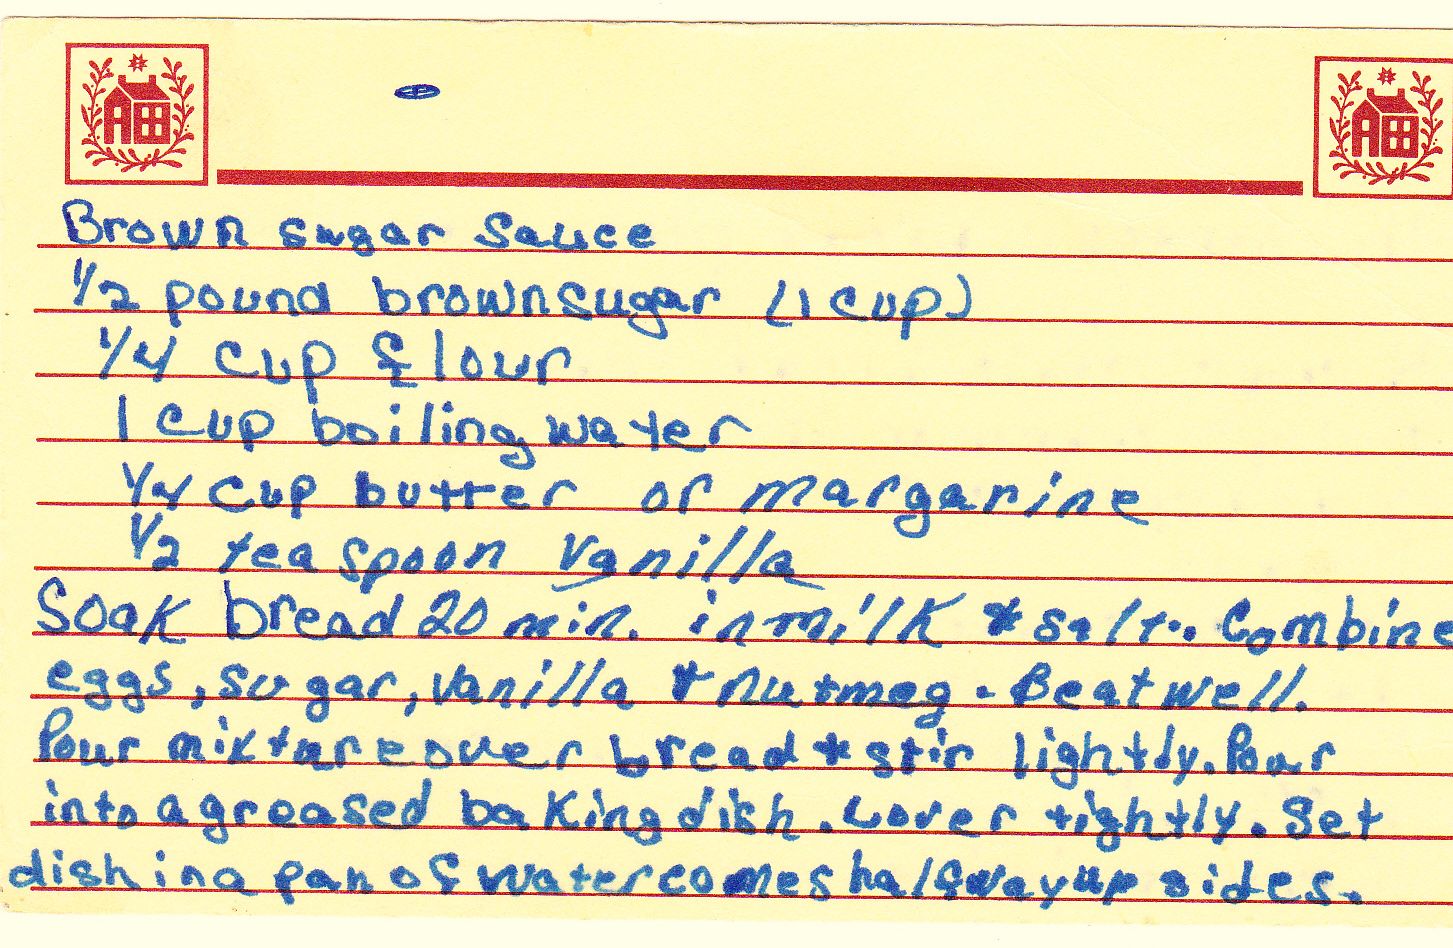 Brown sugar Sauce
1/2 pound brown sugar (1 cup)
1/4 cup flour
1 cup boiling water
1/4 cup butter or margarine
1/2 teaspoon Vanilla
Soak bread 20 min. in milk + salt. Combine
eggs, sugar, vanilla + nutmeg. Beat well.
Pour mixture over bread + stir lightly. Pour
into a greased baking dish. Cover tightly. Set
dish in a pan of water comes half way up sides.